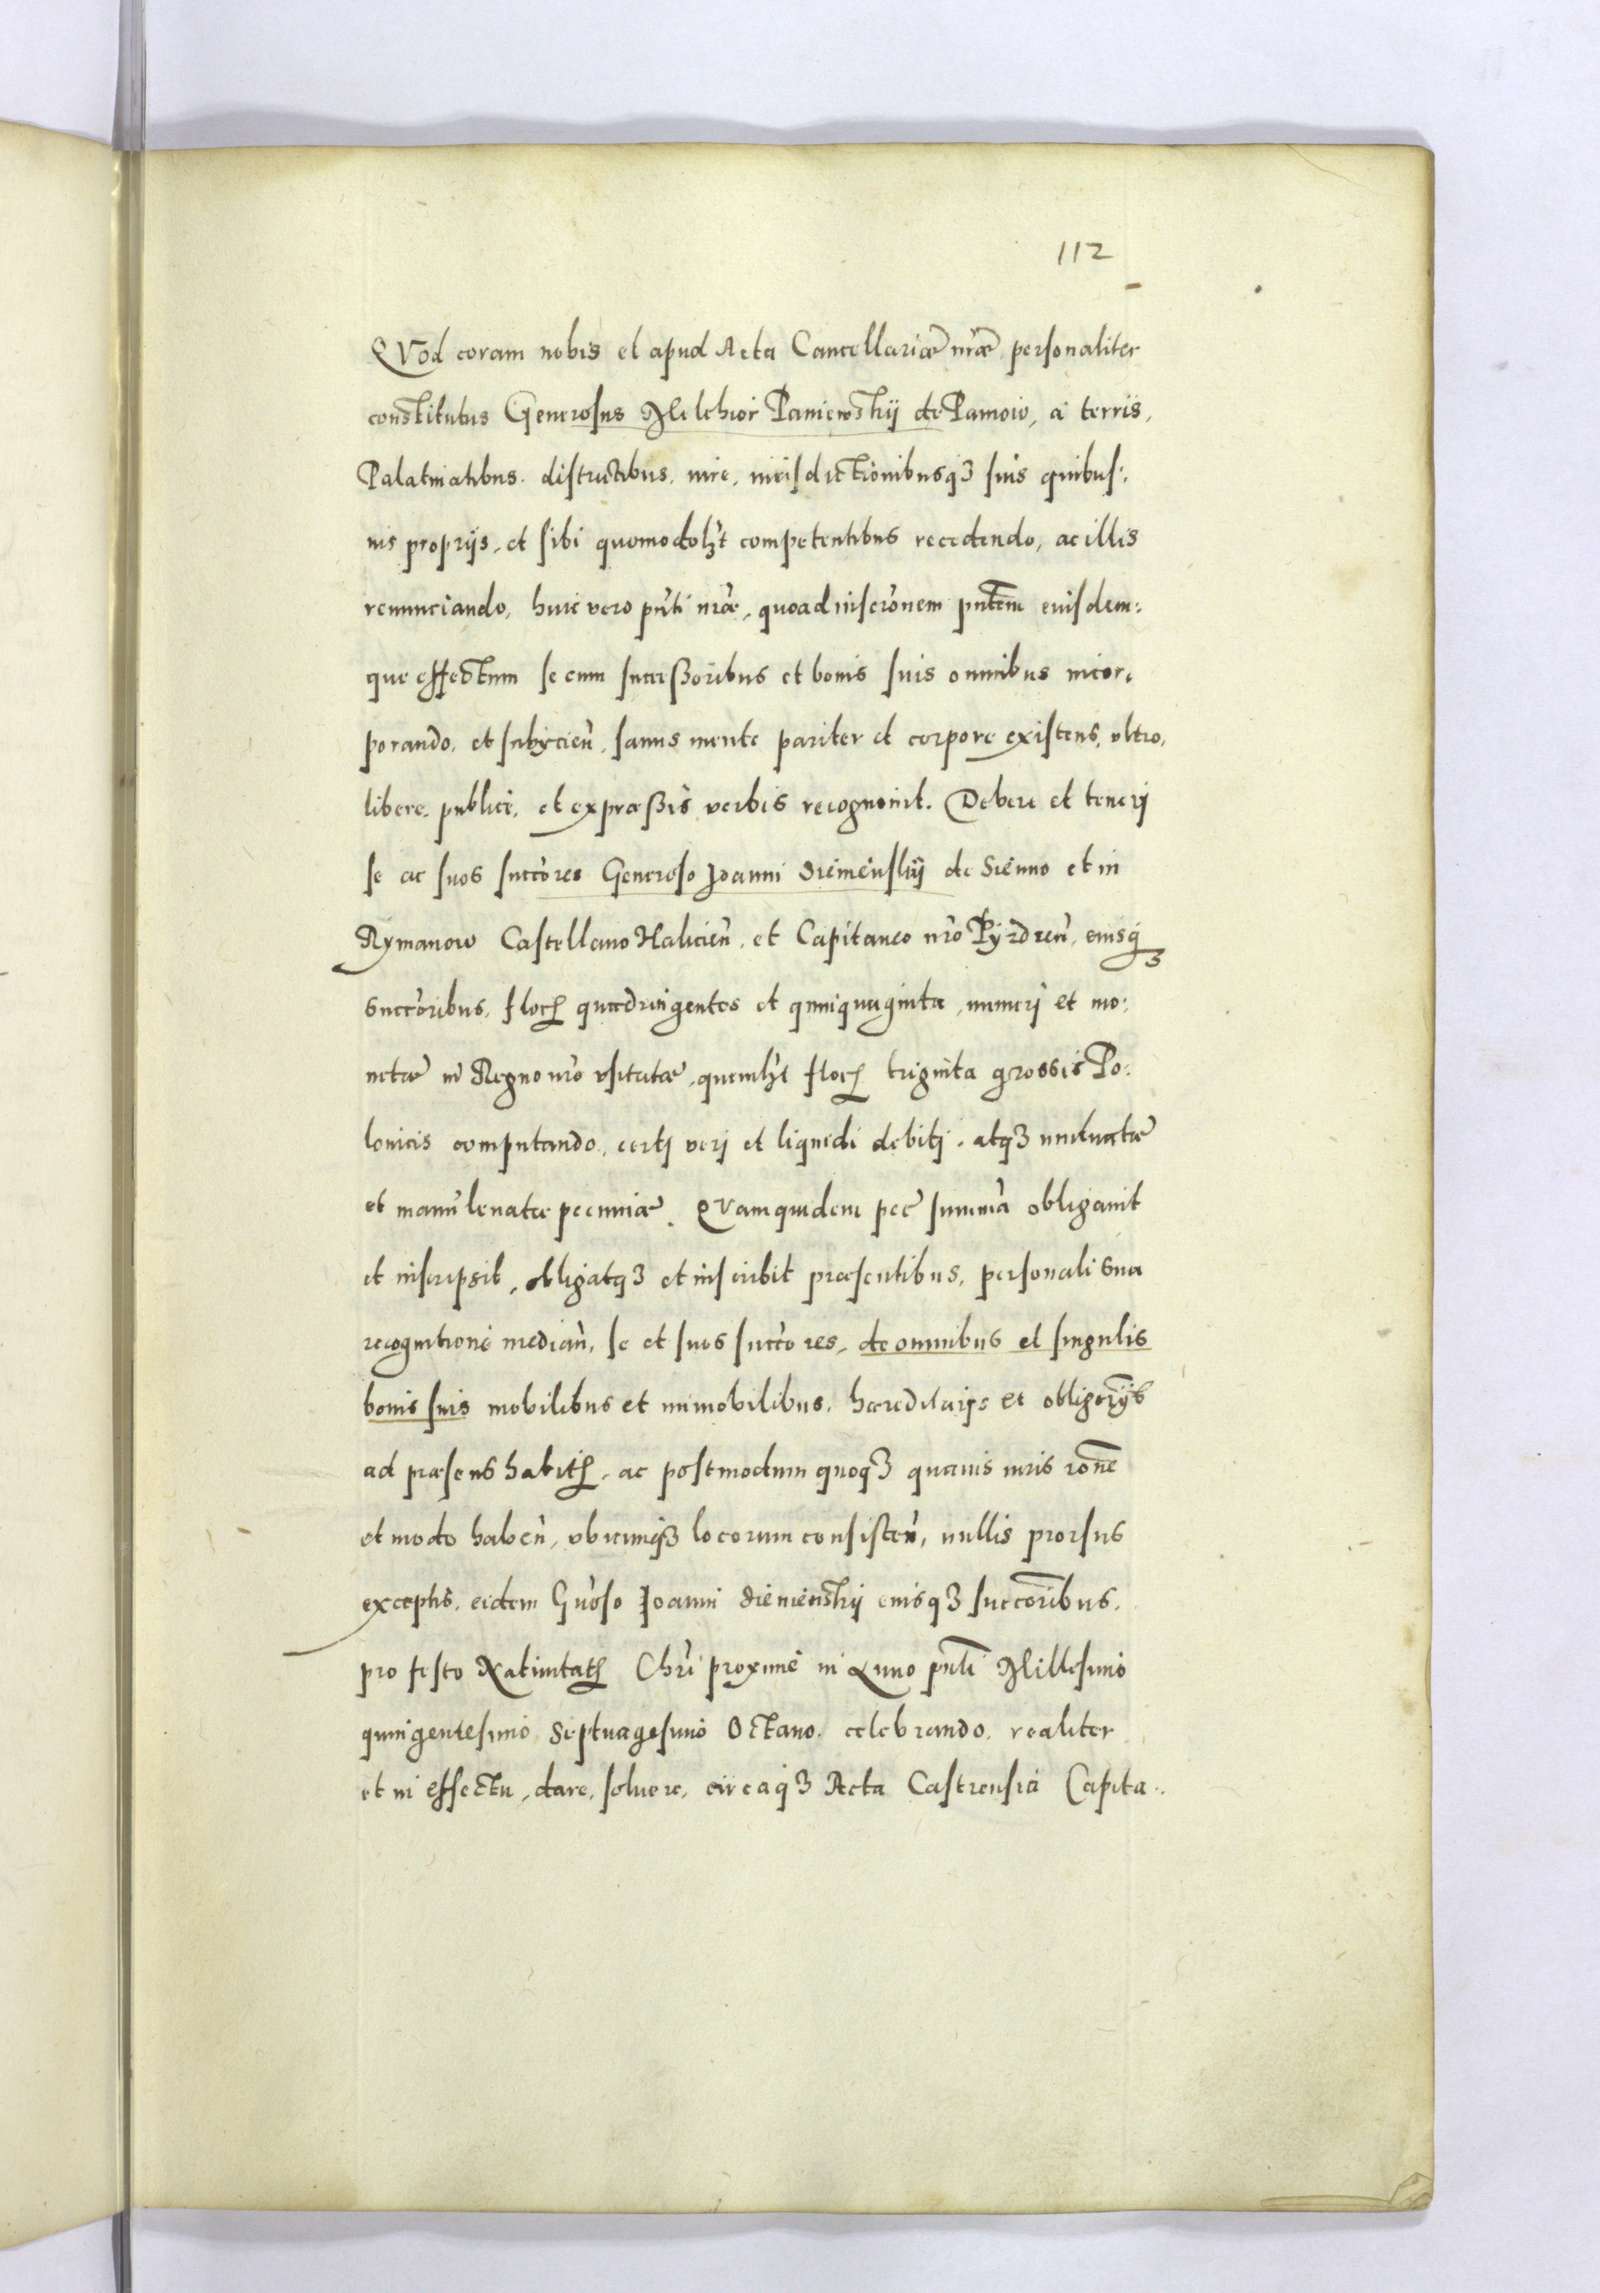 112
QVod coram nobis et apud Acta Cancellariæ nr̃æ personaliter
constitutus Generosus Melchior Paniewskij de Paniow, a terris,
Palatinatibus, districtibus, iure, iurisdictionibusq3 suis quibus:
uis proprijs, et sibi quomodolʒt competentibus recedendo, ac illis
renunciando, huic vero pñti nr̃æ, quoad inscrõnem pñtem eiusdem:
que effectum se cum successoribus et bonis suis omnibus incor:
porando, et subijcieñ, sanus mente pariter et corpore existens, vltro,
libere, publicè, et expræssis verbis recognouit. Debere et tenerj
se ac suos succõres Generoso Joanni Sienienskij de Sienno et in
Rymanow Castellano Halicieñ, et Capitaneo nr̃o Pyzdreñ, eiusq3
succõribus, floꝝ quadringentos et quinquaginta, numerj et mo:
netæ in Regno nr̃o vsitatæ, quemlʒt floꝝ triginta grossis Po:
lonicis computando, certj verj et liquidi debitj, atq3 mutuatæ
et manũ leuatæ pecuniæ. QVamquidem pec̃ summã obligauit
et inscripsit, obligatq3 et inscribit præsentibus, personali sua
recognitione mediañ, se et suos succõres, de omnibus et singulis
bonis suis mobilibus et immobilibus, hæreditarijs et obligõrijs
ad præsens habitꝭ, ac postmodum quoq3 quauis iuris rõne
et modo habeñ, vbicunq3 locorum consisteñ, nullis prorsus
exceptis, eidem Gñoso Joanni Sienienskij eiusq3 succõribus,
pro festo Natiuitatꝭ Chr̃i proximè in Anno pñti Millesimo
quingentesimo Septuagesimo Octauo, celebrando, realiter
et in effectu, dare, soluere, circaq3 Acta Castrensia Capita: